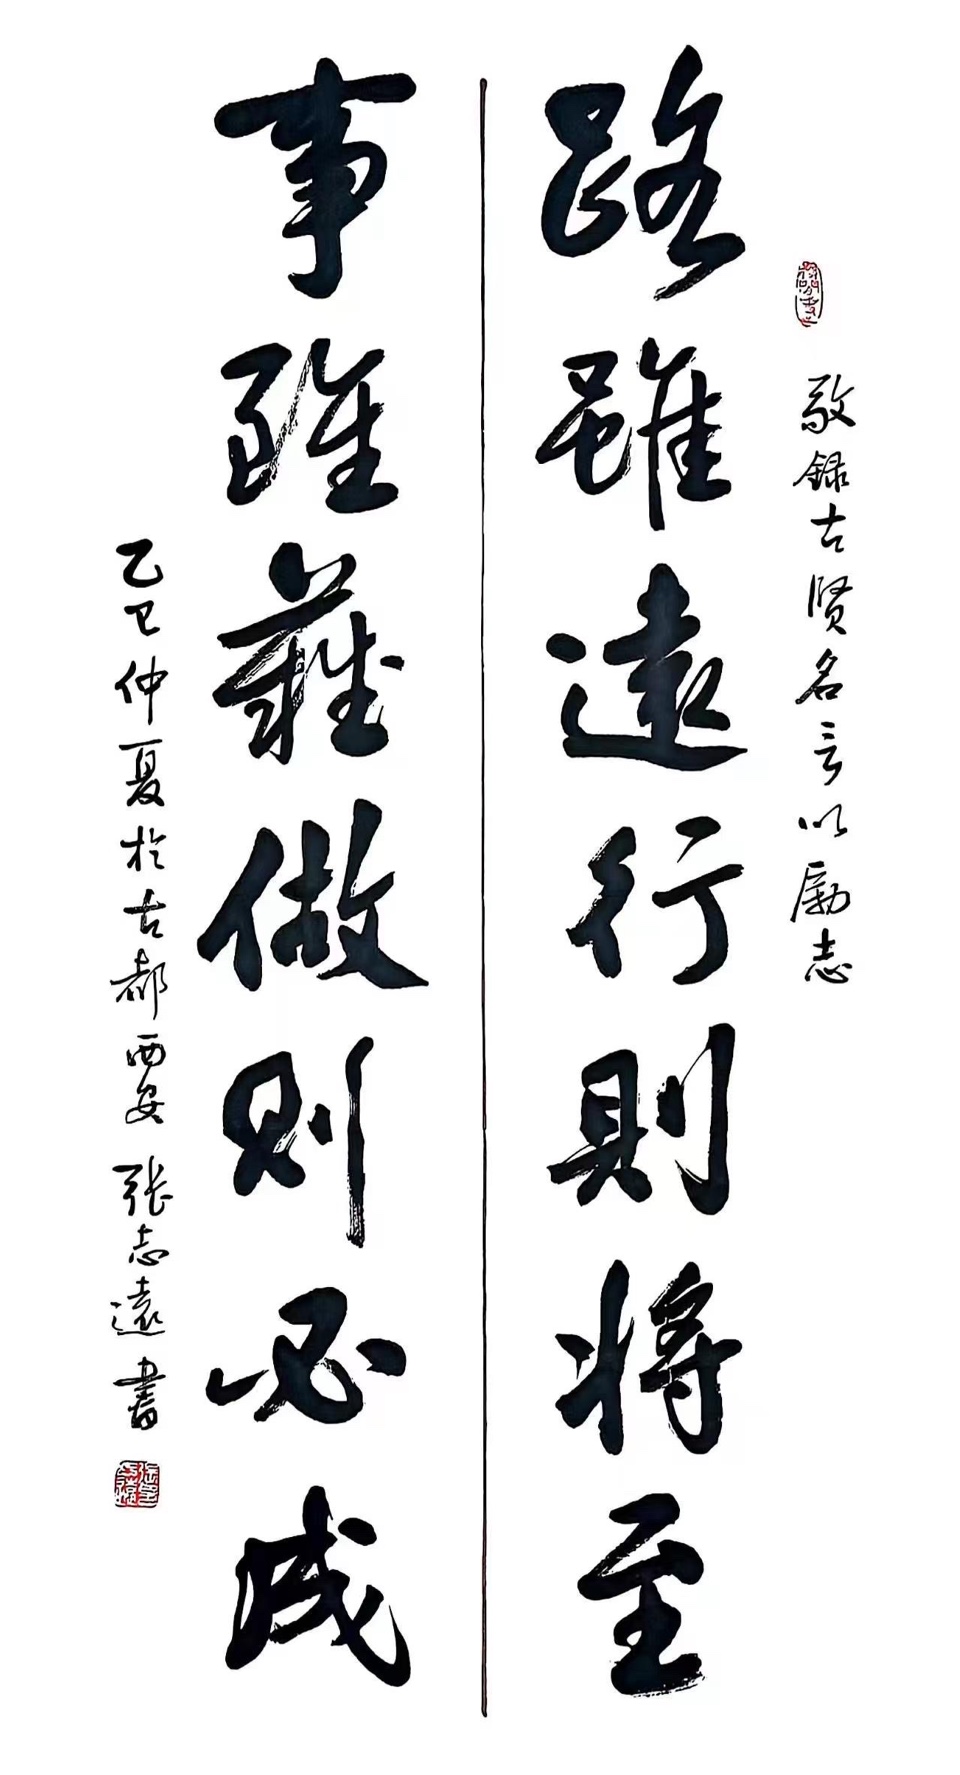 敬録古贤名言以励志
路雖遠行則將至
事雖難做则必成
乙巳仲夏於古都西安 张志遠書